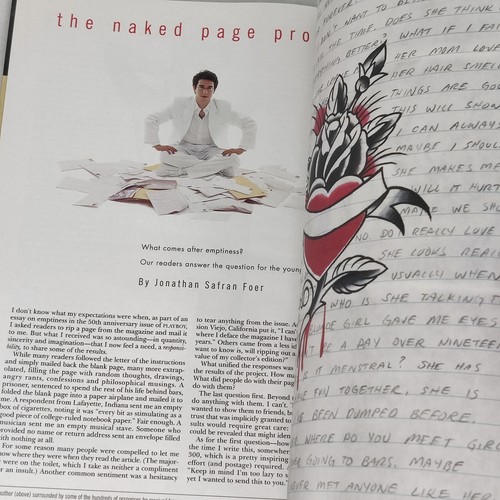 the naked page pro
What comes after emptiness?
Our readers answer the question for the young
By Jonathan Safran Foer
I don't know what my expectations were when, as part of an
essay on emptiness in the 50th anniversary issue of PLAYBOY,
I asked readers to rip a page from the magazine and mail it
to me. But what I received was so astounding—in quantity,
sincerity and imagination—that I now feel a need, a responsi-
bility, to share some of the results.
While many readers followed the letter of the instructions
and simply mailed back the blank page, many more extrap-
olated, filling the page with random thoughts, drawings,
angry rants, confessions and philosophical musings. A
prisoner, sentenced to spend the rest of his life behind bars,
folded the blank page into a paper airplane and mailed
me. A respondent from Lafayette, Indiana sent me an empty
box of cigarettes, noting it was "every bit as stimulating as a
good piece of college-ruled notebook paper." Fair enough. A
musician sent me an empty musical stave. Someone who
provided no name or return address sent an envelope filled
with nothing at all.
For some reason many people were compelled to let me
know where they were when they read the article. (The major-
ity were on the toilet, which I take as neither a compliment
or an insult.) Another common sentiment was a hesitancy
to tear anything from the issue. A
sion Viejo, California put it, "I can't
where I deface the magazine I have
years." Others came from a less i
want to know is, will ripping out
value of my collector's edition?"
What unified the responses was
the results of the project. How m
What did people do with their pag
do with them?
The last question first. Beyond
do anything with them. I can't. T
wanted to show them to friends, b
trust that was implicitly granted to
sults would require great care:
could be revealed that might iden
As for the first question—how
the time I write this, somewher
500, which is a pretty inspiring
effort (and postage) required.
"Keep in mind I'm too lazy to s
yet I wanted to send this to you."
author (above) surrounded by some of the hundreds of responses
WANT TO
THE TIME. DOES SHE THINK
BETTER? WHAT IF I FA
HER MOM LOVE
HER HAIR SMELL
THINGS ARE GO
THIS WILL SHOW
I CAN ALWAYS
MAYBE I SHOUL
SHE MAKES ME
WILL IT HURT
MAYBE WE SHO
DO I REALLY LOVE
SHE LOOKS REAL
USUALLY WHEN
WHO IS SHE TALKING T
GIRL GAVE ME EYES
BE A DAY OVER NINETEE
MENSTRUAL? SHE HAS
TOGETHER. SARE IS
BEEN DUMPED BEFORE
WHERE DO YOU MEET GIRL
GOING TO BARS. MAYBE
EVER MET ANYONE LIKE HER